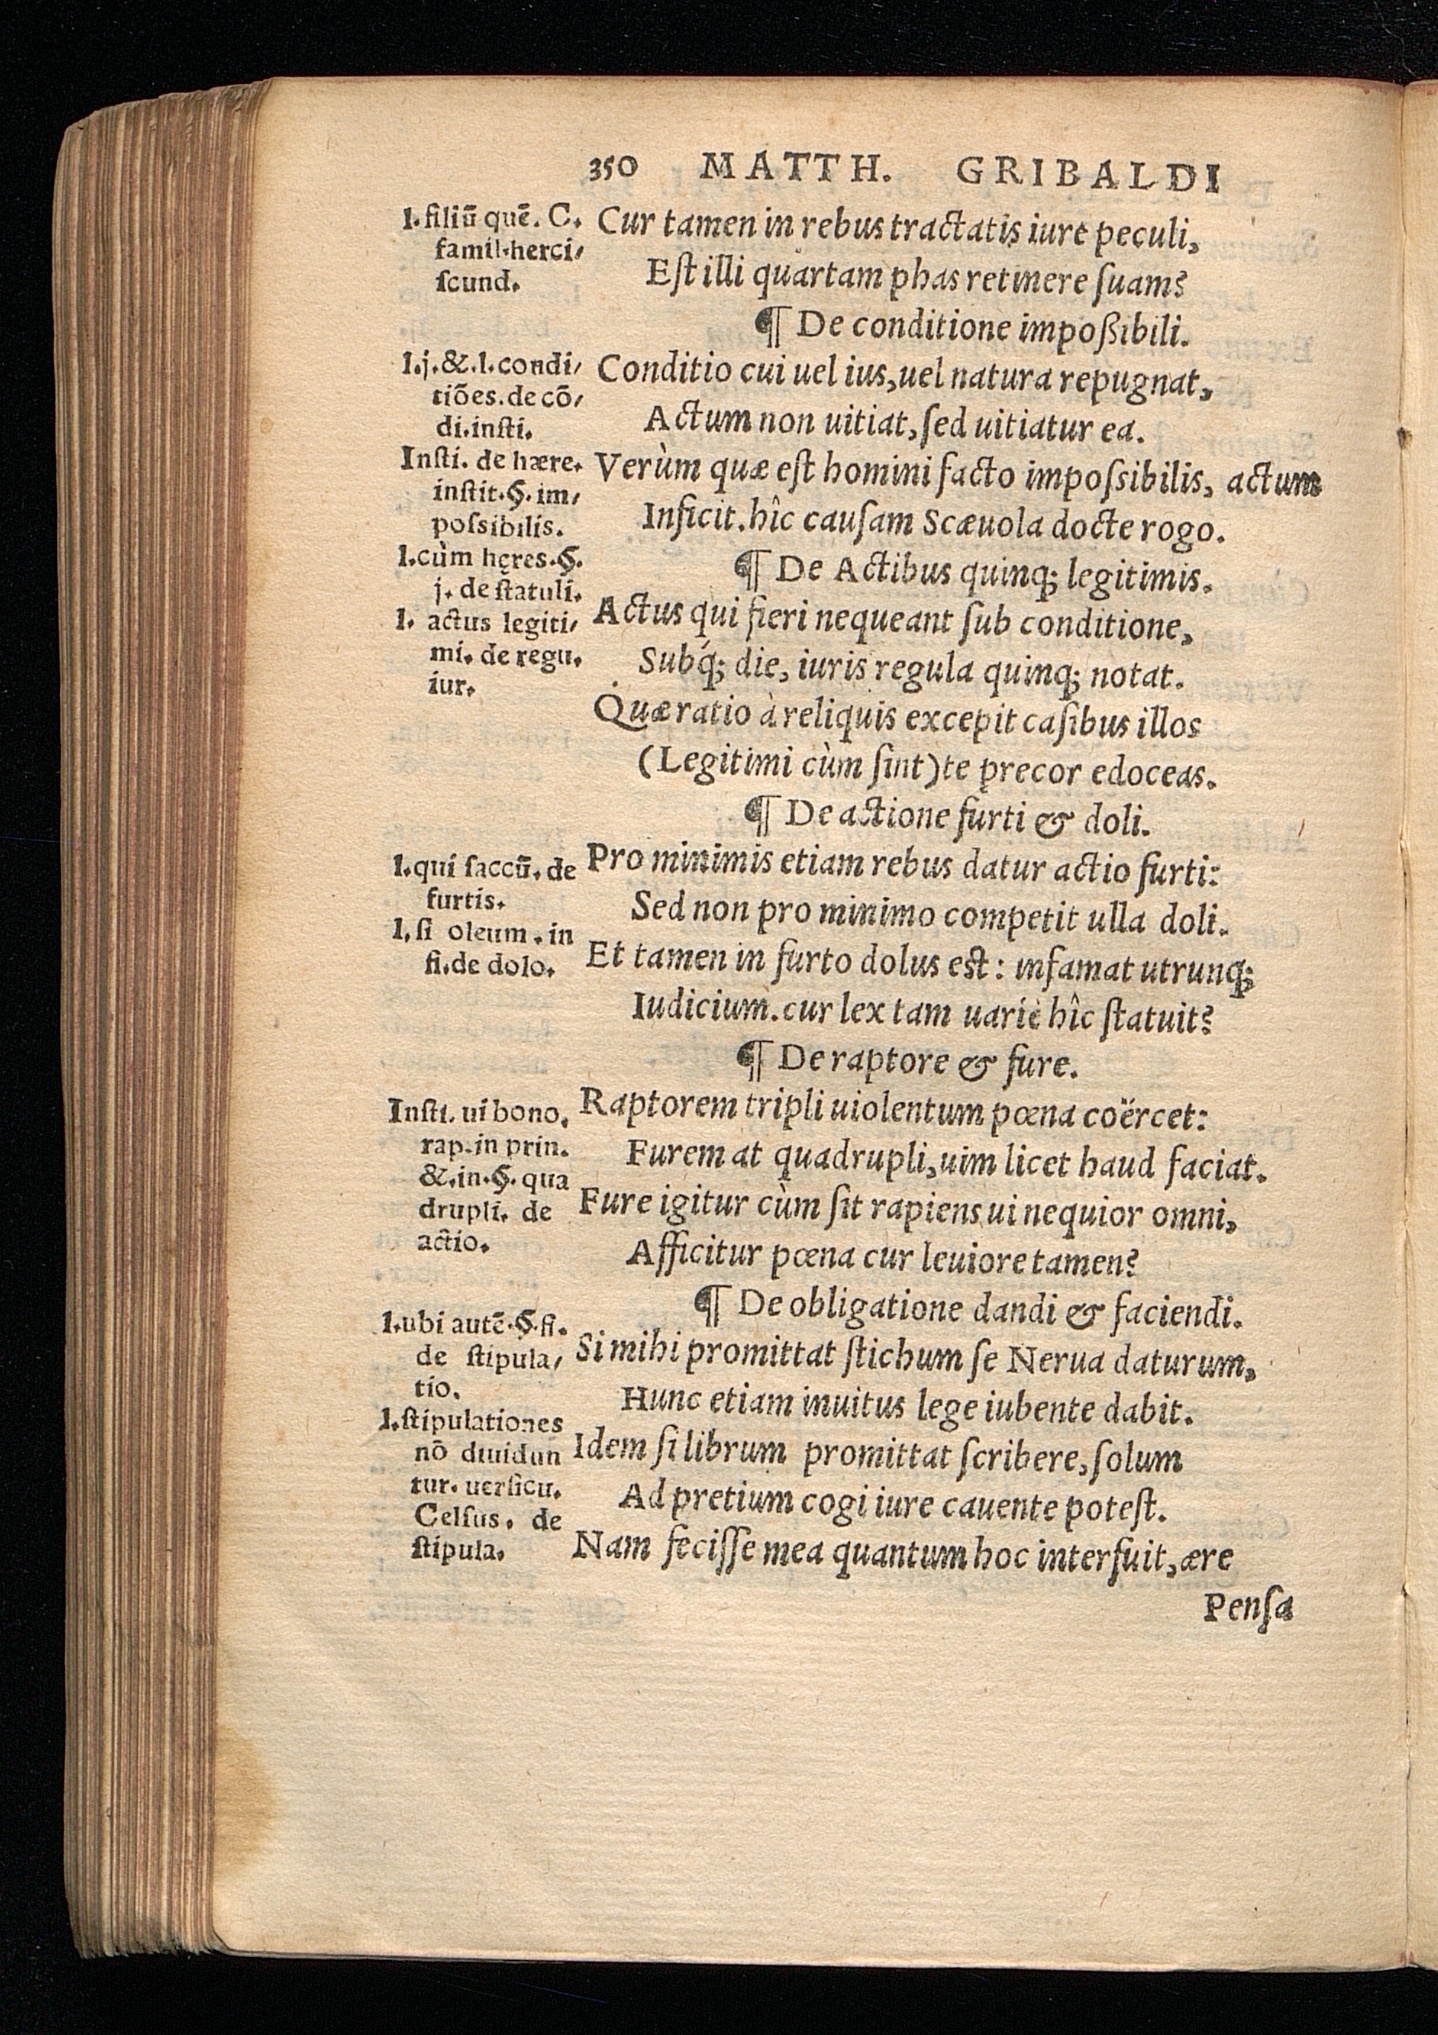 350 MATTH. GRIBALDI
l. filiū quē. C.
famil. herci/
scund.
Cur tamen in rebus tractatis iure peculi,
Eſt illi quartam phas retinere ſuam?
¶ De conditione impoßibili.
l. j. &. l. condi/
tiōes. de cō/
di. inſti.
Inſti. de hære.
inſtit. §. im/
poſsibilis.
Conditio cui uel ius, uel natura repugnat,
Actum non uitiat, ſed uitiatur ea.
Verùm quæ eſt homini facto impoſsibilis, actum
Inficit. hîc cauſam Scæuola docte rogo.
¶ De Actibus quinq; legitimis.
l. cùm hęres. §.
j. de ſtatuli.
l. actus legiti/
mi. de regu.
iur.
Actus qui fieri nequeant ſub conditione,
Subq́; die, iuris regula quinq; notat.
Quæ ratio à reliquis excepit caſibus illos
(Legitimi cùm ſint) te precor edoceas.
¶ De actione furti & doli.
l. qui ſaccū. de
furtis.
l. ſi oleum. in
fi. de dolo.
Pro minimis etiam rebus datur actio furti:
Sed non pro minimo competit ulla doli.
Et tamen in furto dolus est: infamat utrunq;
Iudicium. cur lex tam uariè hîc ſtatuit?
¶ De raptore & fure.
Inſti. ui bono.
rap. in prin.
&. in. §. qua
drupli. de
actio.
Raptorem tripli uiolentum pœna coërcet:
Furem at quadrupli, uim licet haud faciat.
Fure igitur cùm ſit rapiens ui nequior omni,
Afficitur pœna cur leuiore tamen?
¶ De obligatione dandi & faciendi.
l. ubi autē. §. fi.
de ſtipula/
tio.
l. ſtipulationes
nō diuidun
tur. uerſicu.
Celſus. de
ſtipula.
Si mihi promittat ſtichum ſe Nerua daturum,
Hunc etiam inuitus lege iubente dabit.
Idem ſi librum promittat ſcribere, ſolum
Ad pretium cogi iure cauente poteſt.
Nam feciſſe mea quantum hoc interfuit, ære
Penſa